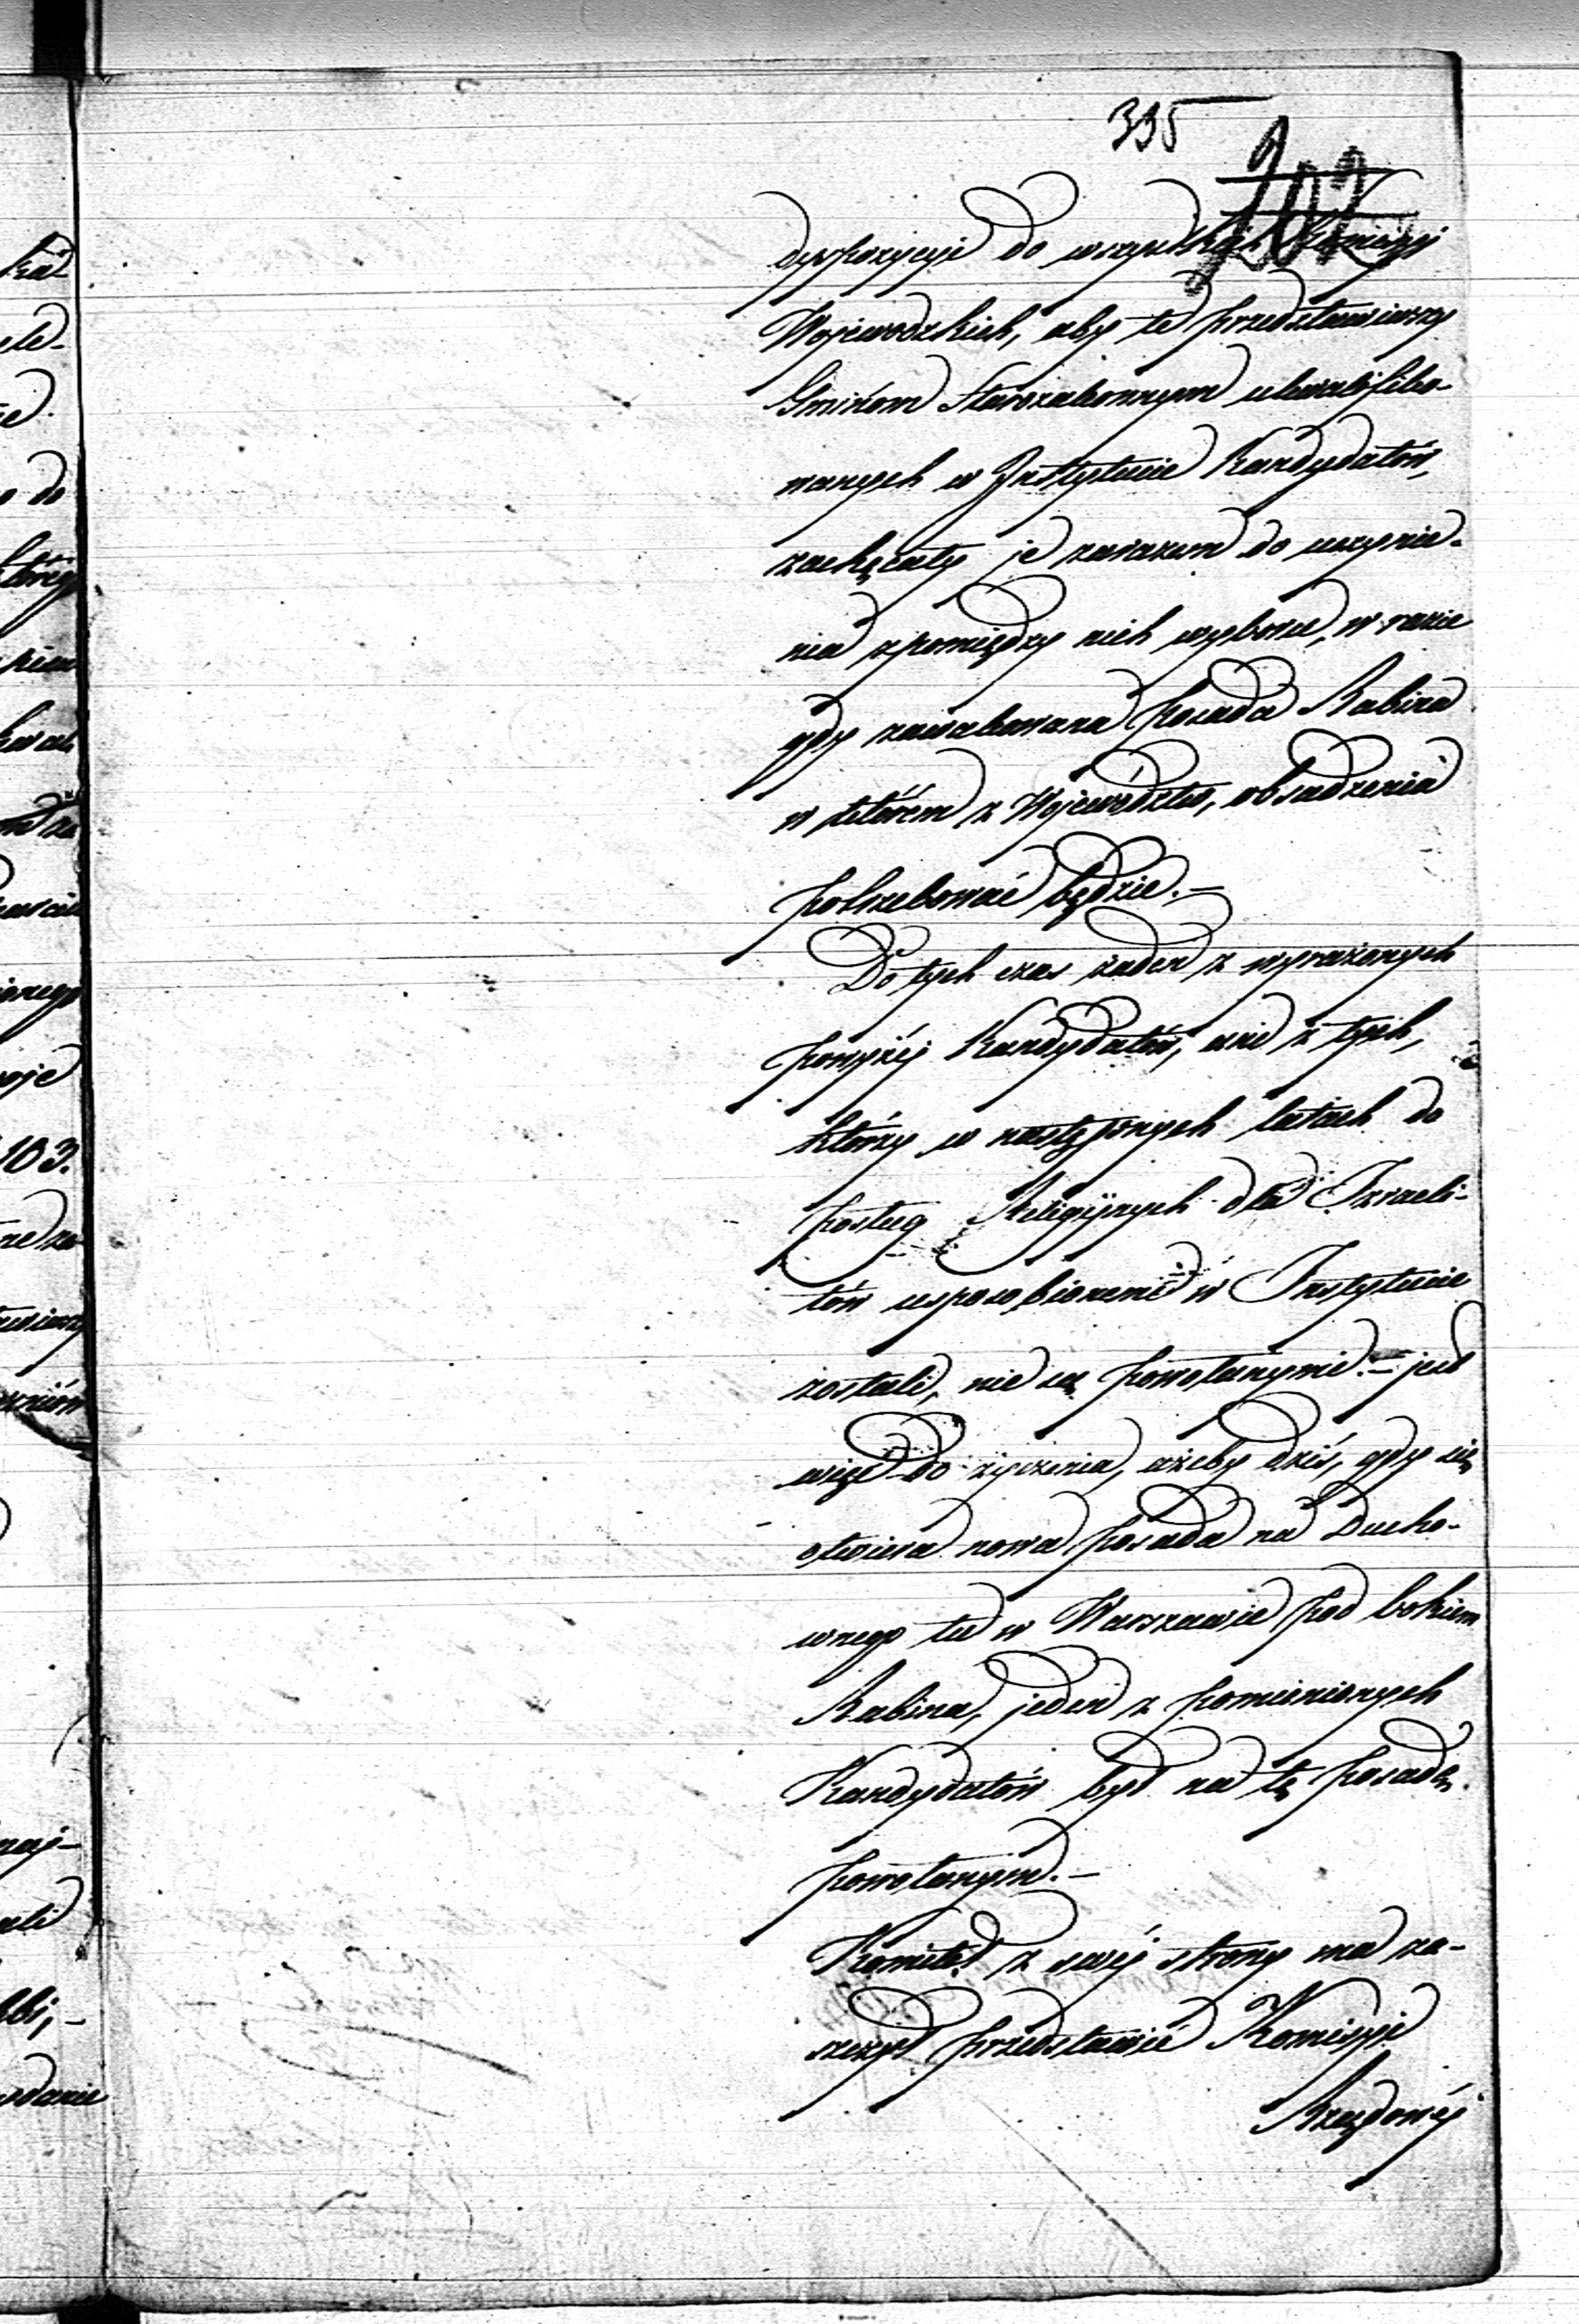 335
202
dyspozycyje do wszystkich Komissyj
Wojewodzkich, aby te przedstawiwszy
Gminom Starozakonnym ukwalifiko-
wanych w Instytucie Kandydatów,
zachęcały je zarazem do uczynie-
nia z pomiędzy nich wyboru, w razie
gdy zawakowana posada Rabina
w którem z Województw, obsadzenia
potrzebować będzie.—
Do tych czas żaden z wyrażonych
powyżéj Kandydatów, ani z tych,
którzy w następnych latach do
posług Religijnych dla Izraeli-
tów usposobionemi w Instytucie
zostali, nie są powołanymi.— jest
więc do życzenia, ażeby dziś, gdy się
otwiera nowa posada na Ducho-
wnego tu w Warszawie pod bokiem
Rabina, jeden z pomienionych
Kandydatów był na tę posadę
powołanym.—
Komitet z swéj strony ma za-
szczyt przedstawić Komissyi
Rządowéj